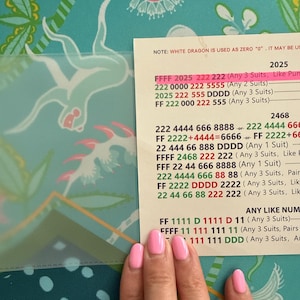 NOTE: WHITE DRAGON IS USED AS ZERO "0". IT MAY BE U
2025
FFFF 2025 222 222 (Any 3 Suits, Like Pun
222 0000 222 5555 (Any 2 Suits)
2025 222 555 DDDD (Any 3 Suits)
FF 222 000 222 555 (Any 3 Suits)
2468
222 4444 666 8888 -or- 222 4444 666
FF 2222+4444=6666 -or- FF 2222+6
22 444 66 888 DDDD (Any 3 Suits)
FFFF 2468 222 222 (Any 3 Suits, Like
FFF 22 44 666 8888 (Any 1 Suit)
222 4444 666 88 88 (Any 3 Suits, Pairs
FF 2222 DDDD 2222 (Any 3 Suits, Like
22 44 66 88 222 222 (Any 3 Suits, Pai
ANY LIKE NUM
FF 1111 D 1111 D 11 (Any 3 Suits)
FFFF 11 111 111 11 (Any 3 Suits, Pairs
111 111 DDD (Any 3 Suits, A